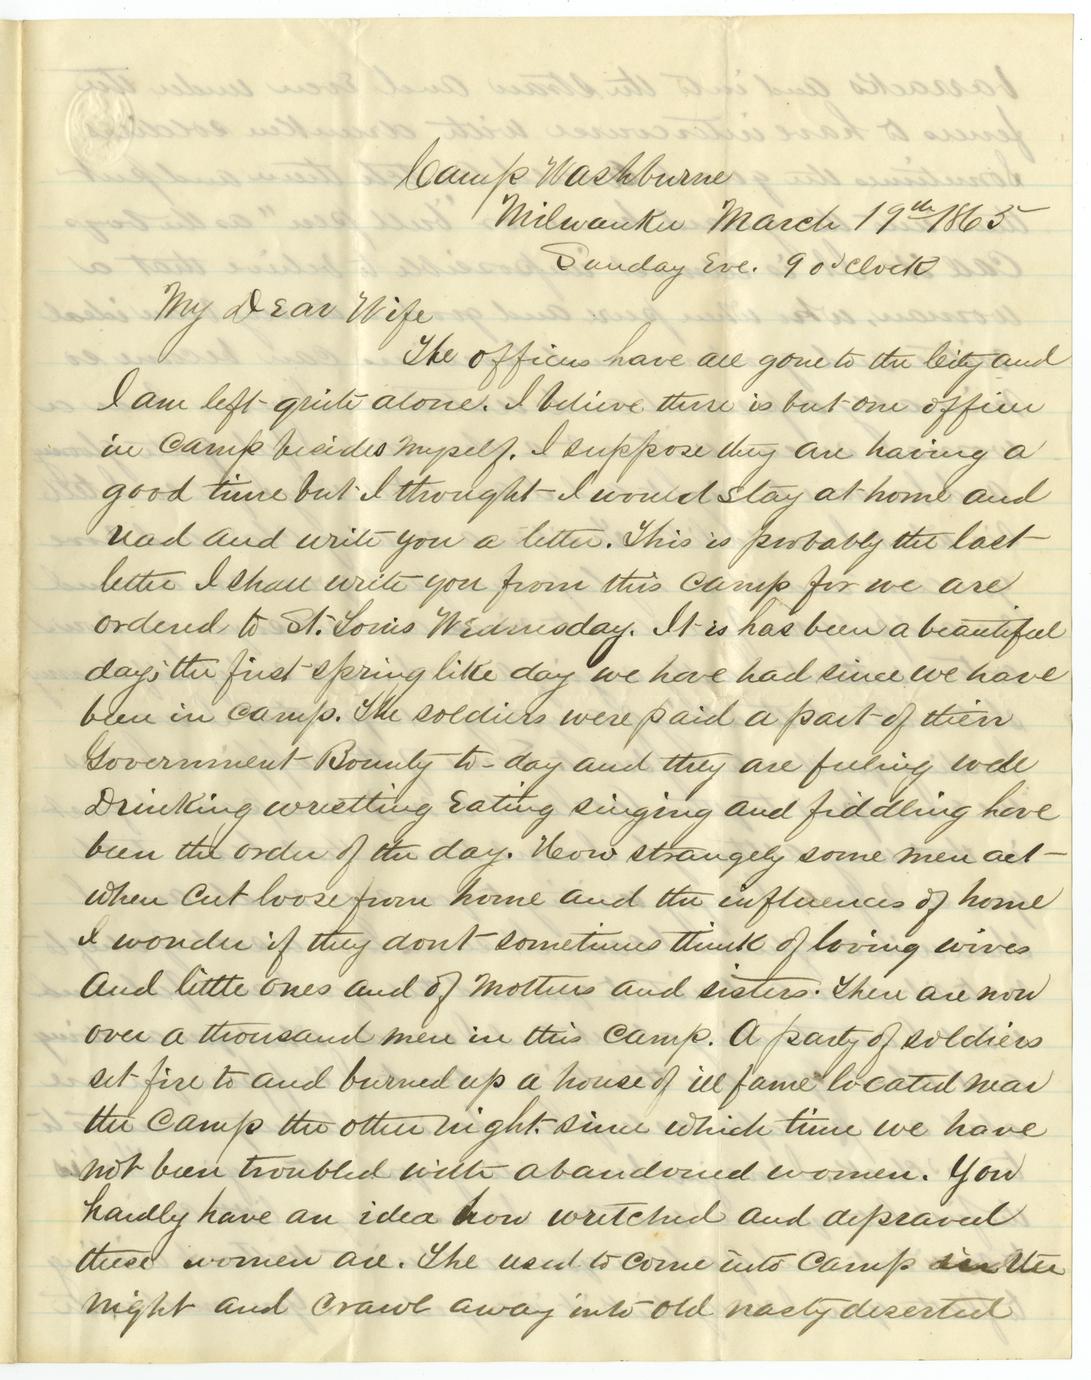 Camp Washburne
Milwaukee March 19th 1865
Sunday Eve. 9 o'clock
My Dear Wife
The officers have all gone to the City and
I am left quite alone. I believe there is but one officer
in Camp besides myself. I suppose they are having a
good time but I thought I would stay at home and
read and write you a letter. This is probably the last
letter I shall write you from this Camp for we are
ordered to St. Louis Wednesday. It is has been a beautiful
day; the first spring like day we have had since we have
been in camp. The soldiers were paid a part of their
Government Bounty to-day and they are feeling well
Drinking wrestling Eating singing and fiddling have
been the order of the day. How strangely some men act
when cut loose from home and the influences of home
I wonder if they dont sometimes think of loving wives
And little ones and of Mothers and sisters. There are now
over a thousand men in this Camp. A party of soldiers
set fire to and burned up a house of ill fame located near
the Camp the other night since which time we have
not been troubled with abandoned women. You
hardly have an idea how wretched and depraved
these women are. The used to come into Camp in the
night and Crawl away into old nasty deserted